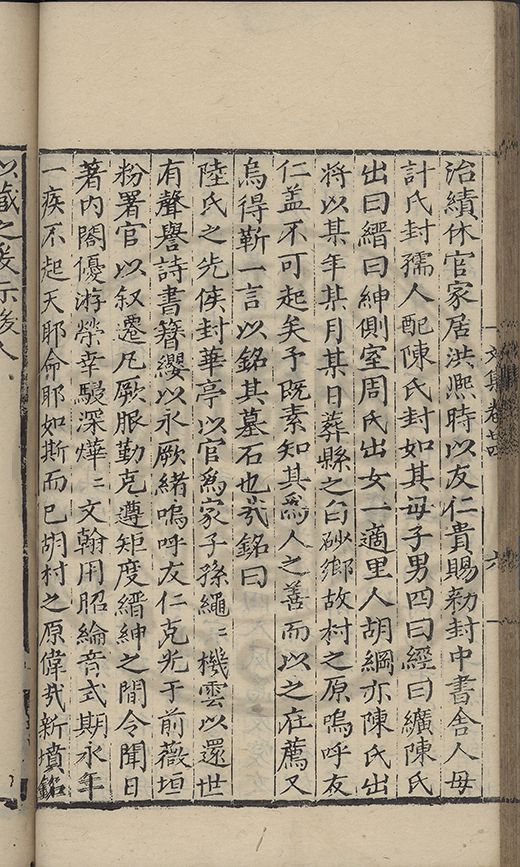 治績休官家居洪熈時以友仁貴賜勑封中書舍人母
計氏封孺人配陳氏封如其母子男四曰經曰纊陳氏
出曰縉曰紳側室周氏出女一適里人胡綱亦陳氏出
將以某年某月某日葬縣之白砂鄉故村之原嗚呼友
仁盖不可起矣予既素知其爲人之善而以之在薦又
烏得靳一言以銘其墓石也㢤銘曰
陸氏之先侯封華亭以官爲家子孫繩〻機雲以還世
有聲譽詩書簪纓以永厥緒嗚呼友仁克光于前薇垣
粉署官以叙遷凡厥服勤克遵矩度縉紳之間令聞日
著内閣優游榮幸駸深燁〻文翰用昭綸音式期永年
一疾不起天耶命耶如斯而已胡村之原偉㢤新墳銘
以藏之後示後人
文集卷之廿四
六